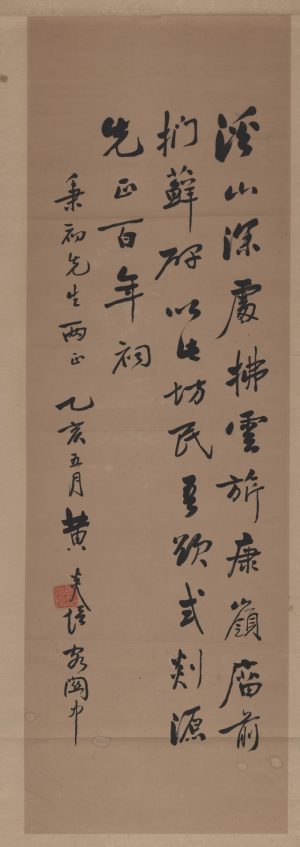 溪山深處拂雲旂康嶺庿前
捫蘚碑以此坊民吾欲式剡源
先正百年祠
秉初先生兩正 乙亥五月黃炎培客闽中